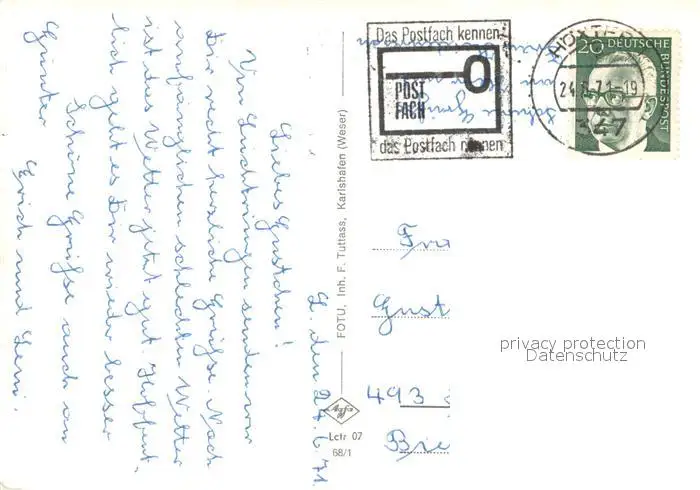 L. den 24.6.71.
Liebes Gustchen!
Von Lüchtringen senden wir
Dir recht herzliche Grüße. Nach
anfänglichen schlechten Wetter
ist das Wetter jetzt gut. Hoffent-
lich geht es Dir wieder besser
Schöne Grüße auch an
Günter Erich und Leni.
FOTU, Inh. F. Tuttass, Karlshafen (Weser)
Agfa
Lctr 07
68/1
Das Postfach kennen
POST
FACH
das Postfach nennen
HÖXTER
24.6.71-19
347
20 DEUTSCHE
BUNDESPOST
Schöne
Frau
Gust
493
privacy protection
Datenschutz